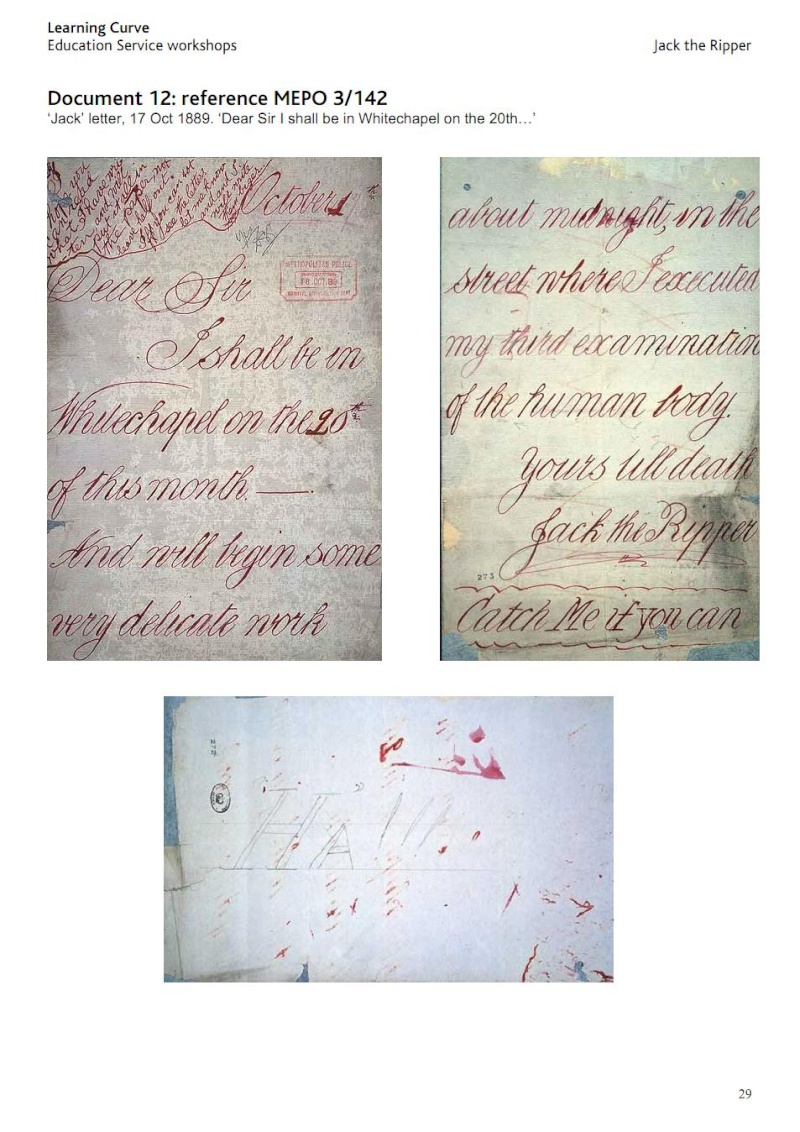 Learning Curve
Education Service workshops
Jack the Ripper
Document 12: reference MEPO 3/142
‘Jack’ letter, 17 Oct 1889. ‘Dear Sir I shall be in Whitechapel on the 20th…’
October 17th
METROPOLITAN POLICE
18.OCT.89
Dear Sir
I shall be in
Whitechapel on the 20th
of this month. —
And will begin some
very delicate work
about midnight, in the
street where I executed
my third examination
of the human body.
Yours till death
Jack the Ripper
273
Catch Me if you can
Ha!!!
29